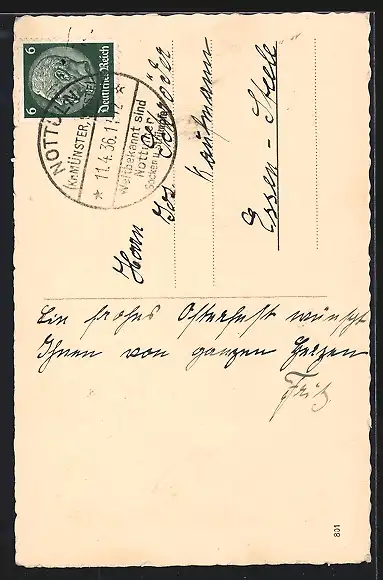 6 6
Deutsches Reich
NOTTULN
(Kr. MÜNSTER)
11.4.36.
Weltbekannt sind
Nottulner
Socken u. Strümpfe
Herrn
Jos. Schröder
Kaufmann
Essen-Steele
Ein frohes Osterfest wünscht
Ihnen von ganzen Herzen
Fritz
801